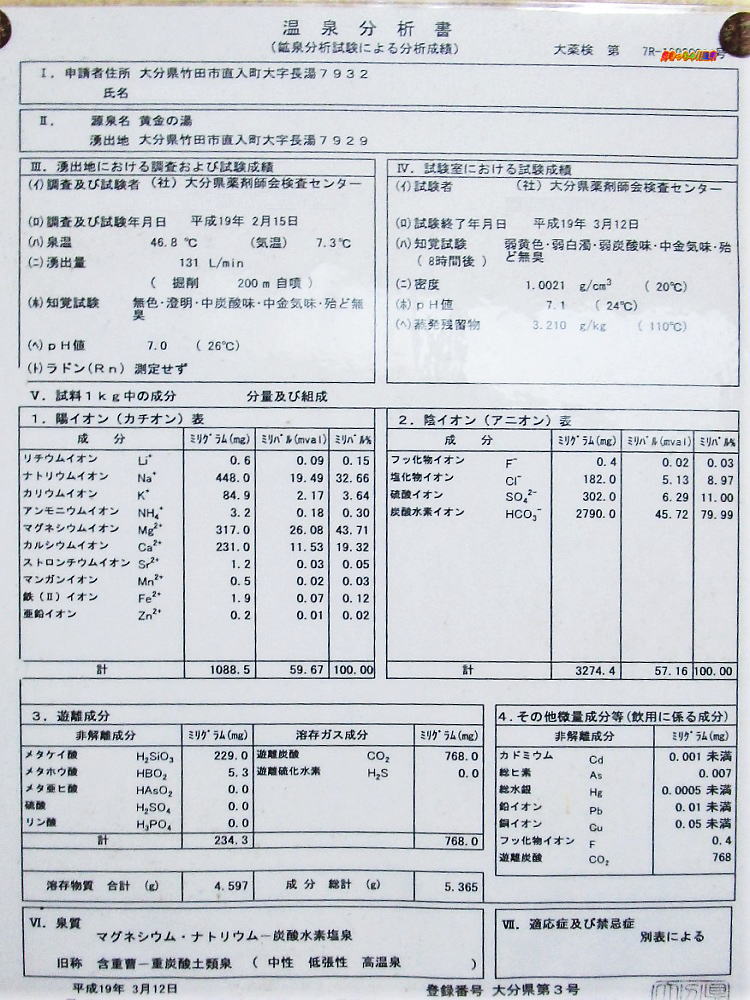 温泉分析書
(鉱泉分析試験による分析成績)
大薬検 第 7R- 号
Ⅰ. 申請者住所 大分県竹田市直入町大字長湯7932
氏名
Ⅱ. 源泉名 黄金の湯
湧出地 大分県竹田市直入町大字長湯7929
Ⅲ. 湧出地における調査および試験成績
(イ)調査及び試験者 (社)大分県薬剤師会検査センター
(ロ)調査及び試験年月日 平成19年 2月15日
(ハ)泉温 46.8 ℃ (気温) 7.3℃
(ニ)湧出量 131 L/min
( 掘削 200m自噴 )
(ホ)知覚試験 無色・澄明・中炭酸味・中金気味・殆ど無
臭
(ヘ)pH値 7.0 ( 26℃)
(ト)ラドン(Rn) 測定せず
Ⅳ. 試験室における試験成績
(イ)試験者 (社)大分県薬剤師会検査センター
(ロ)試験終了年月日 平成19年 3月12日
(ハ)知覚試験 弱黄色・弱白濁・弱炭酸味・中金気味・殆
( 8時間後 ) ど無臭
(ニ)密度 1.0021 g/cm³ ( 20℃)
(ホ)pH値 7.1 ( 24℃)
(ヘ)蒸発残留物 3.210 g/kg ( 110℃)
Ⅴ. 試料1kg中の成分 分量及び組成
1. 陽イオン(カチオン)表
成 分 ミリグラム(mg) ミリバル(mval) ミリバル%
リチウムイオン Li⁺ 0.6 0.09 0.15
ナトリウムイオン Na⁺ 448.0 19.49 32.66
カリウムイオン K⁺ 84.9 2.17 3.64
アンモニウムイオン NH₄⁺ 3.2 0.18 0.30
マグネシウムイオン Mg²⁺ 317.0 26.08 43.71
カルシウムイオン Ca²⁺ 231.0 11.53 19.32
ストロンチウムイオン Sr²⁺ 1.2 0.03 0.05
マンガンイオン Mn²⁺ 0.5 0.02 0.03
鉄(Ⅱ)イオン Fe²⁺ 1.9 0.07 0.12
亜鉛イオン Zn²⁺ 0.2 0.01 0.02
計 1088.5 59.67 100.00
2. 陰イオン(アニオン)表
成 分 ミリグラム(mg) ミリバル(mval) ミリバル%
フッ化物イオン F⁻ 0.4 0.02 0.03
塩化物イオン Cl⁻ 182.0 5.13 8.97
硫酸イオン SO₄²⁻ 302.0 6.29 11.00
炭酸水素イオン HCO₃⁻ 2790.0 45.72 79.99
計 3274.4 57.16 100.00
3. 遊離成分
非解離成分 ミリグラム(mg) 溶存ガス成分 ミリグラム(mg)
メタケイ酸 H₂SiO₃ 229.0 遊離炭酸 CO₂ 768.0
メタホウ酸 HBO₂ 5.3 遊離硫化水素 H₂S 0.0
メタ亜ヒ酸 HAsO₂ 0.0
硫酸 H₂SO₄ 0.0
リン酸 H₃PO₄ 0.0
計 234.3 768.0
4.その他微量成分等(飲用に係る成分)
非解離成分 ミリグラム(mg)
カドミウム Cd 0.001 未満
総ヒ素 As 0.007
総水銀 Hg 0.0005 未満
鉛イオン Pb 0.01 未満
銅イオン Cu 0.05 未満
フッ化物イオン F 0.4
遊離炭酸 CO₂ 768
溶存物質 合計 (g) 4.597 成分 総計 (g) 5.365
Ⅵ. 泉質
マグネシウム・ナトリウム－炭酸水素塩泉
旧称 含重曹－重炭酸土類泉 ( 中性 低張性 高温泉 )
Ⅶ. 適応症及び禁忌症
別表による
平成19年 3月12日
登録番号 大分県第3号